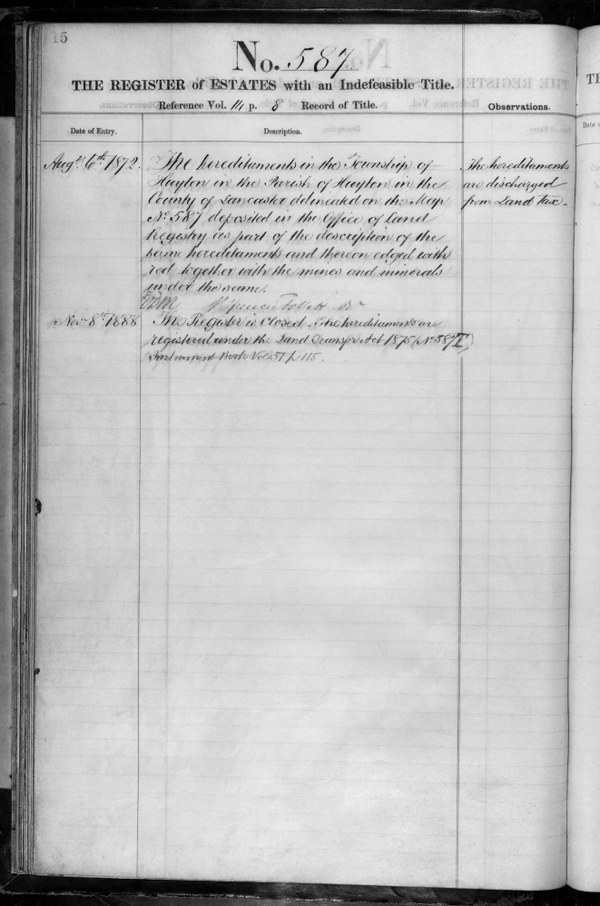 15
No. 587
THE REGISTER of ESTATES with an Indefeasible Title.
Reference Vol. 14 p. 8 Record of Title.
Observations.
Date of Entry.
Description.
Augt 6th 1872.
The hereditaments in the Township of
Huyton in the Parish of Huyton in the
County of Lancaster delineated on the Map
No. 587 deposited in the Office of Land
Registry as part of the description of the
same hereditaments and thereon edged with
red together with the mines and minerals
under the same.
The hereditaments
are discharged
from Land tax.
Follett
Novr 8th 1888
The Register is closed. The hereditaments are
registered under the Land Transfer Act 1875 (No 587
Instrument Book Vol. 57 p 115.
THE
Date of